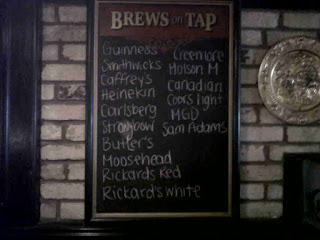 BREWS on TAP
Guinness
Smithwicks
Caffrey's
Heinekin
Carlsberg
Strongbow
Butler's
Moosehead
Rickards Red
Rickard's White
Creemore
Molson M
Canadian
Coors light
MGD
Sam Adams